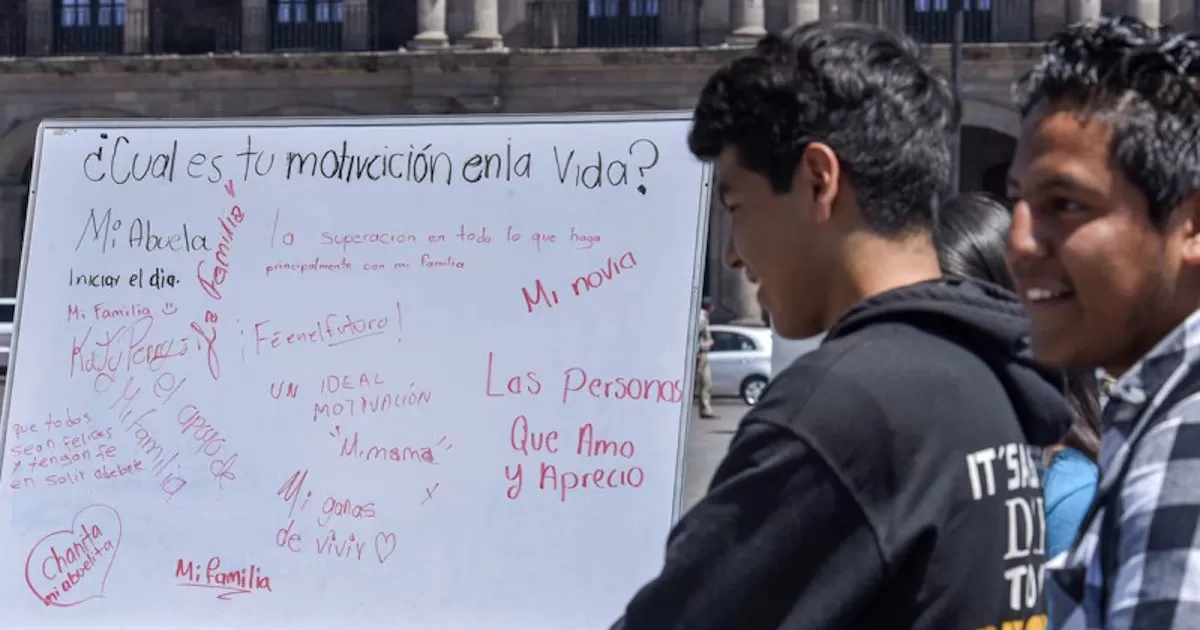 ¿Cual es tu motivcición en la Vida?
Mi Abuela
Iniciar el dia.
Mi Familia
La familia
la superacion en todo lo que haga
principalmente con mi familia
Mi novia
¡Fé en el futuro!
Katy Perry
UN IDEAL
MOTIVACIÓN
"Mi mama"
El apoyo de
Mi familia
que todos
sean felices
y tengan fe
en salir
Las Personas
Que Amo
y Aprecio
Mi ganas
de vivir
x
charita
mi abuelita
Mi familia
IT'S
TO